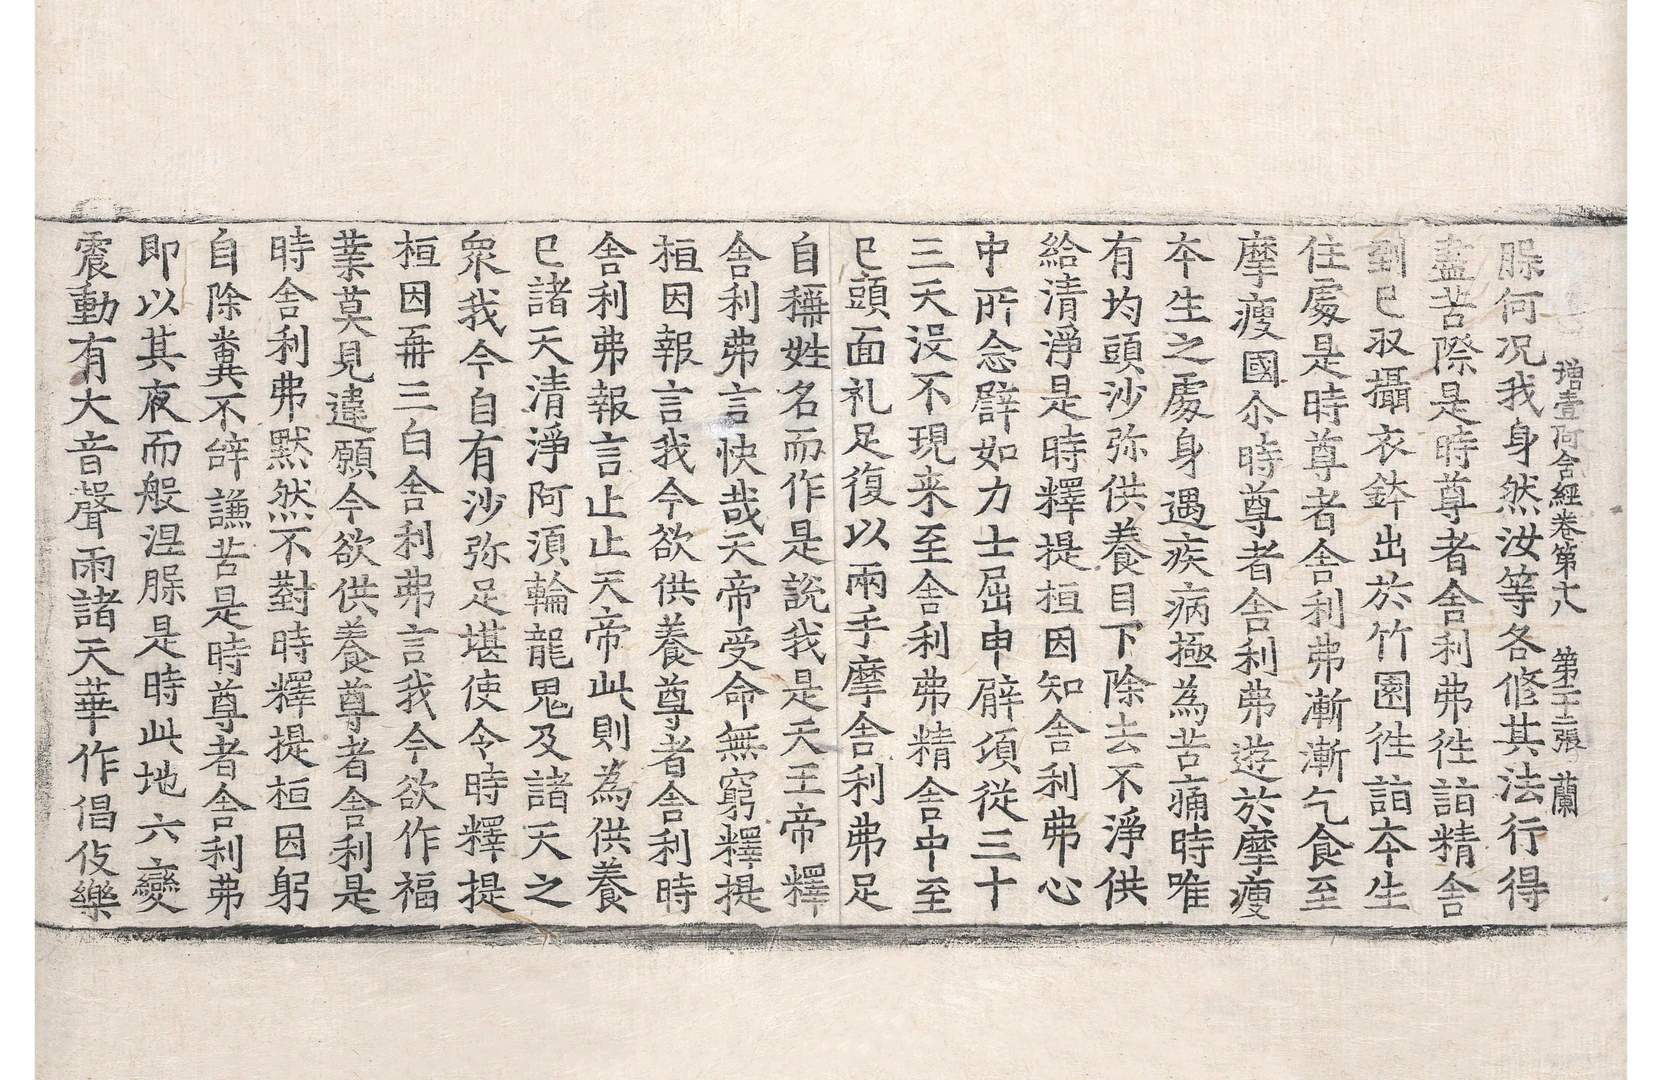 增壹阿含經卷第十八　第二十二張　蘭
脲何况我身然汝等各修其法行得
盡苦際是時尊者舍利弗徃詣精舍
到已収攝衣鉢出於竹園徃詣夲生
住處是時尊者舍利弗漸漸乞食至
摩瘦國尒時尊者舍利弗遊於摩瘦
夲生之處身遇疾病極為苦痛時唯
有均頭沙弥供養目下除去不淨供
給清淨是時釋提桓因知舍利弗心
中所念譬如力士屈申臂頃從三十
三天没不現来至舍利弗精舍中至
已頭面礼足復以兩手摩舍利弗足
自稱姓名而作是說我是天王帝釋
舍利弗言快哉天帝受命無窮釋提
桓因報言我今欲供養尊者舍利時
舍利弗報言止止天帝此則為供養
已諸天清淨阿湏輪龍鬼及諸天之
衆我今自有沙弥足堪使令時釋提
桓因再三白舍利弗言我今欲作福
業莫見違願今欲供養尊者舍利是
時舍利弗默然不對時釋提桓因躬
自除糞不辤謙苦是時尊者舍利弗
即以其夜而般涅脲是時此地六變
震動有大音聲雨諸天華作倡伎樂